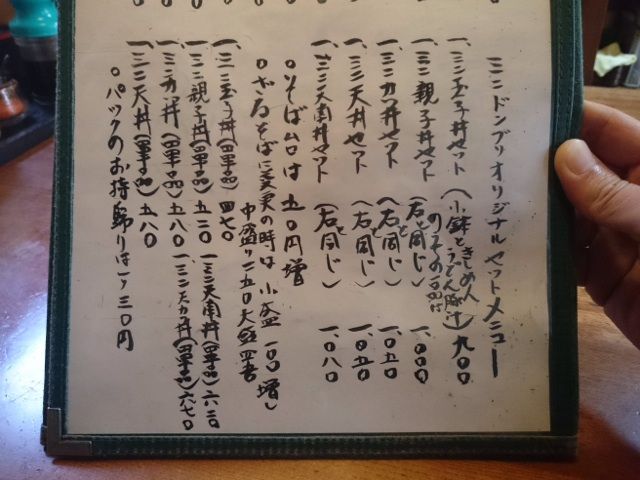 ミニドンブリオリジナルセットメニュー
一、ミニ玉子丼セット(小鉢ときしめん 九〇〇
一、ミニ親子丼セット(右と同じ) 一、〇〇〇
一、ミニカツ丼セット(右と同じ) 一、〇五〇
一、ミニ天丼セット(右と同じ) 一、〇五〇
一、ミニ天南丼セット(右と同じ) 一、〇八〇
○そば台は五〇円増
○ざるそばに変更の時は小盛一〇〇増
中盛り二五〇大盛四
一、ミニ玉子丼(単品)四七〇
一、ミニ親子丼(単品)五二〇
一、ミニカツ丼(単品)五八〇
一、ミニ天丼(単品)五八〇
一、ミニ天南丼(単品)六二〇
一、ミニ丼(単品)六七〇
○パックのお持帰りは一ケ三〇円